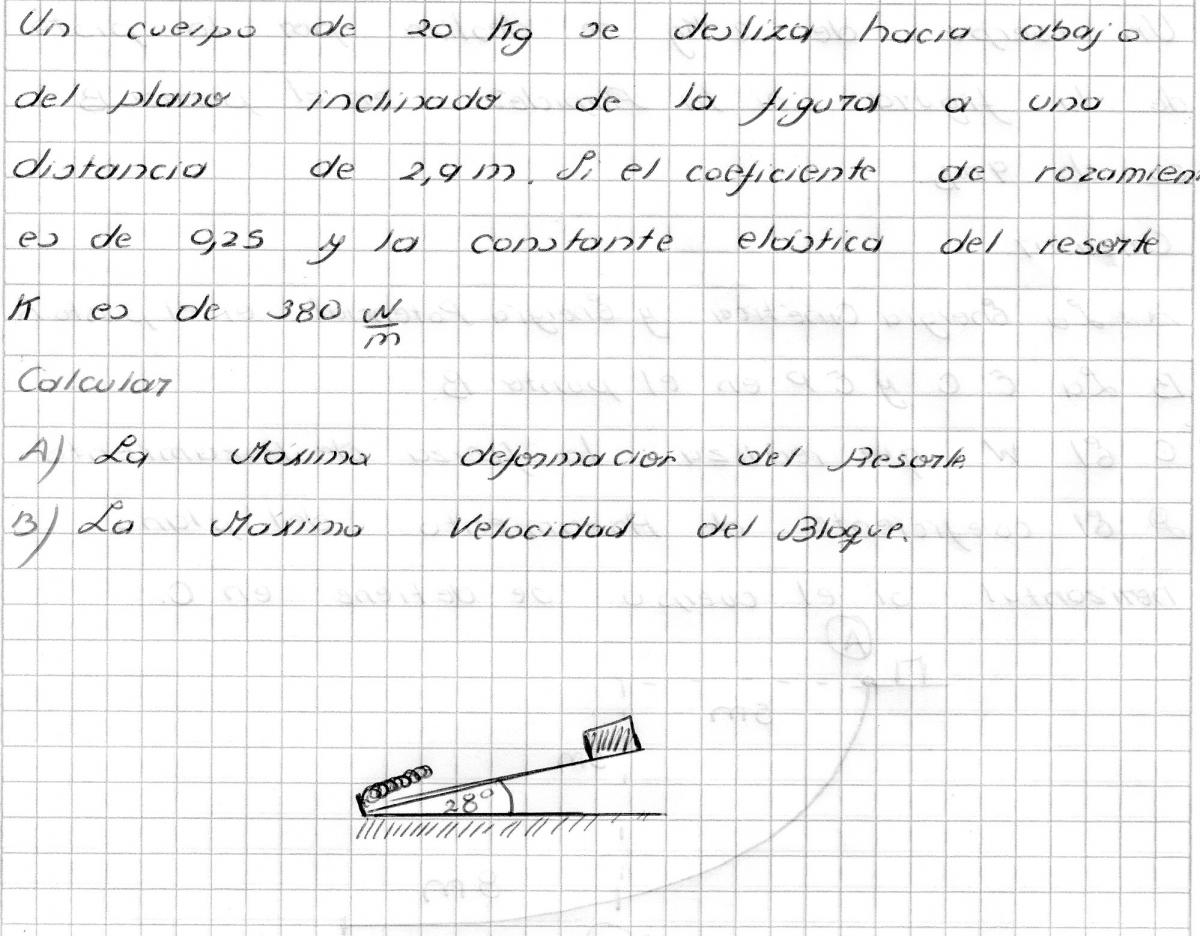 Un cuerpo de 20 Kg se desliza hacia abajo
del plano inclinado de la figura a una
distancia de 2,9 m. Si el coeficiente de rozamien
es de 0,25 y la constante elástica del resorte
K es de 380 N/m
Calcular
A) La Maxima deformacion del Resorte
B) La Maxima Velocidad del Bloque.
28°